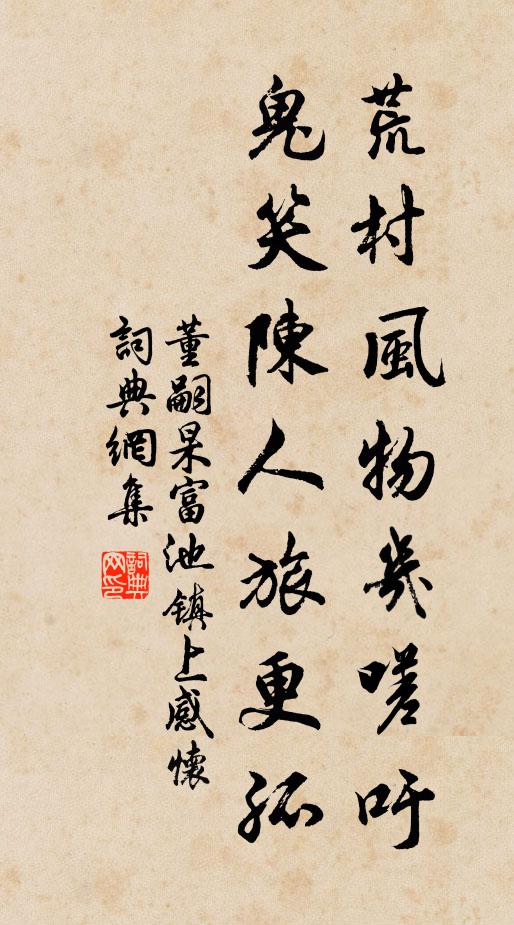 荒村風物幾嗟吁
鬼笑陳人旅更孤
董嗣杲富池鎮上感懷
詞典網集
詞典网印